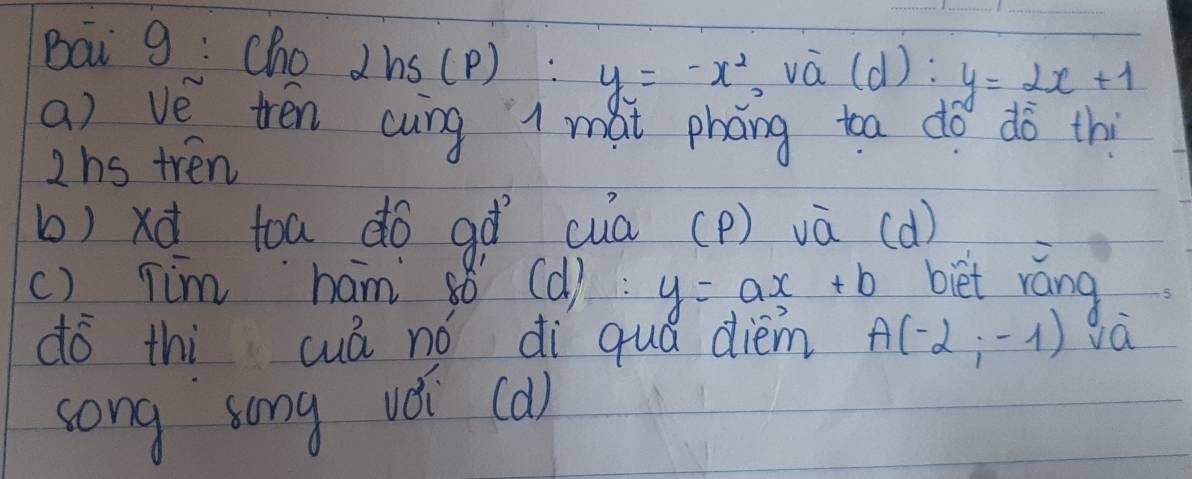 Bài 9: Cho 2 hs (P) : y = -x², và (d) : y = 2x + 1
a) Vẽ trên cùng 1 mặt phẳng tọa độ đồ thị
2 hs trên
b) xđ tọa độ gđ của (P) và (d)
c) Tìm hàm số (d) : y = ax + b biết rằng
đồ thị của nó đi qua điểm A(-2 ; -1) và
song song với (d)